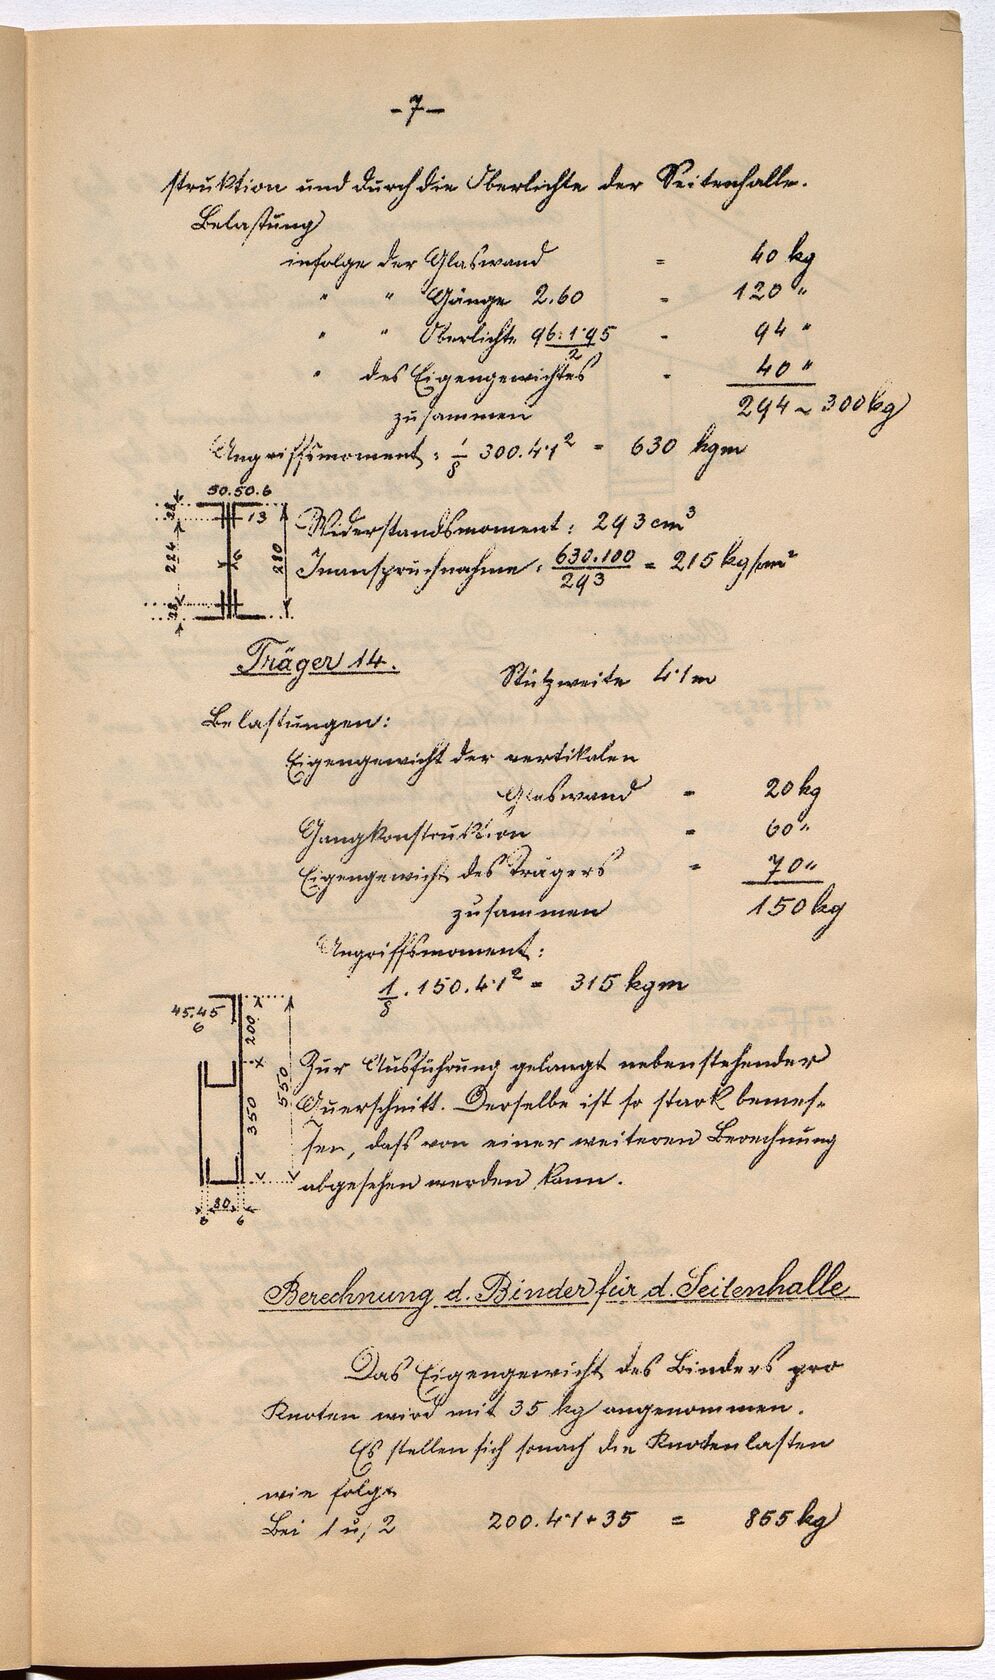 -7-
struktion und durch die Oberlichte der Seitenhalle.
Belastung
infolge der Glaswand = 40 kg
" " Gänge 2.60 = 120 "
" " Oberlichte 96·1·95/2 = 94 "
" des Eigengewichtes = 40 "
zusammen 294 ~ 300 kg
Angriffsmoment: 1/8 300.4·1² = 630 kgm
50.50.6
28 13
224 6 280
28
Widerstandsmoment: 293 cm³
Inanspruchnahme: 630.100/293 = 215 kg/cm²
Träger 14.
Stützweite 4·1 m
Belastungen:
Eigengewicht der vertikalen
Glaswand = 20 kg
Gangkonstruktion = 60 "
Eigengewicht des Trägers = 70 "
zusammen 150 kg
Angriffsmoment:
1/8 . 150.4·1² = 315 kgm
45.45
6
200
350 550
6 80 6
Zur Ausführung gelangt nebenstehender
Querschnitt. Derselbe ist so stark bemes-
sen, dass von einer weiteren Berechnung
abgesehen werden kann.
Berechnung d. Binder für d. Seitenhalle
Das Eigengewicht des Binders pro
Knoten wird mit 35 kg angenommen.
Es stellen sich sonach die Knotenlasten
wie folgt
Bei 1 u, 2 200.4·1+35 = 855 kg